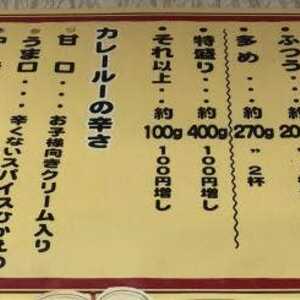 ふつう…約20
多め…270g 〃 2杯
特盛り…約400g 100円増し
それ以上…約100g 100円増し
カレールーの辛さ
・甘口…お子様向きクリーム入り
・うま口…辛くないスパイスひかえめ